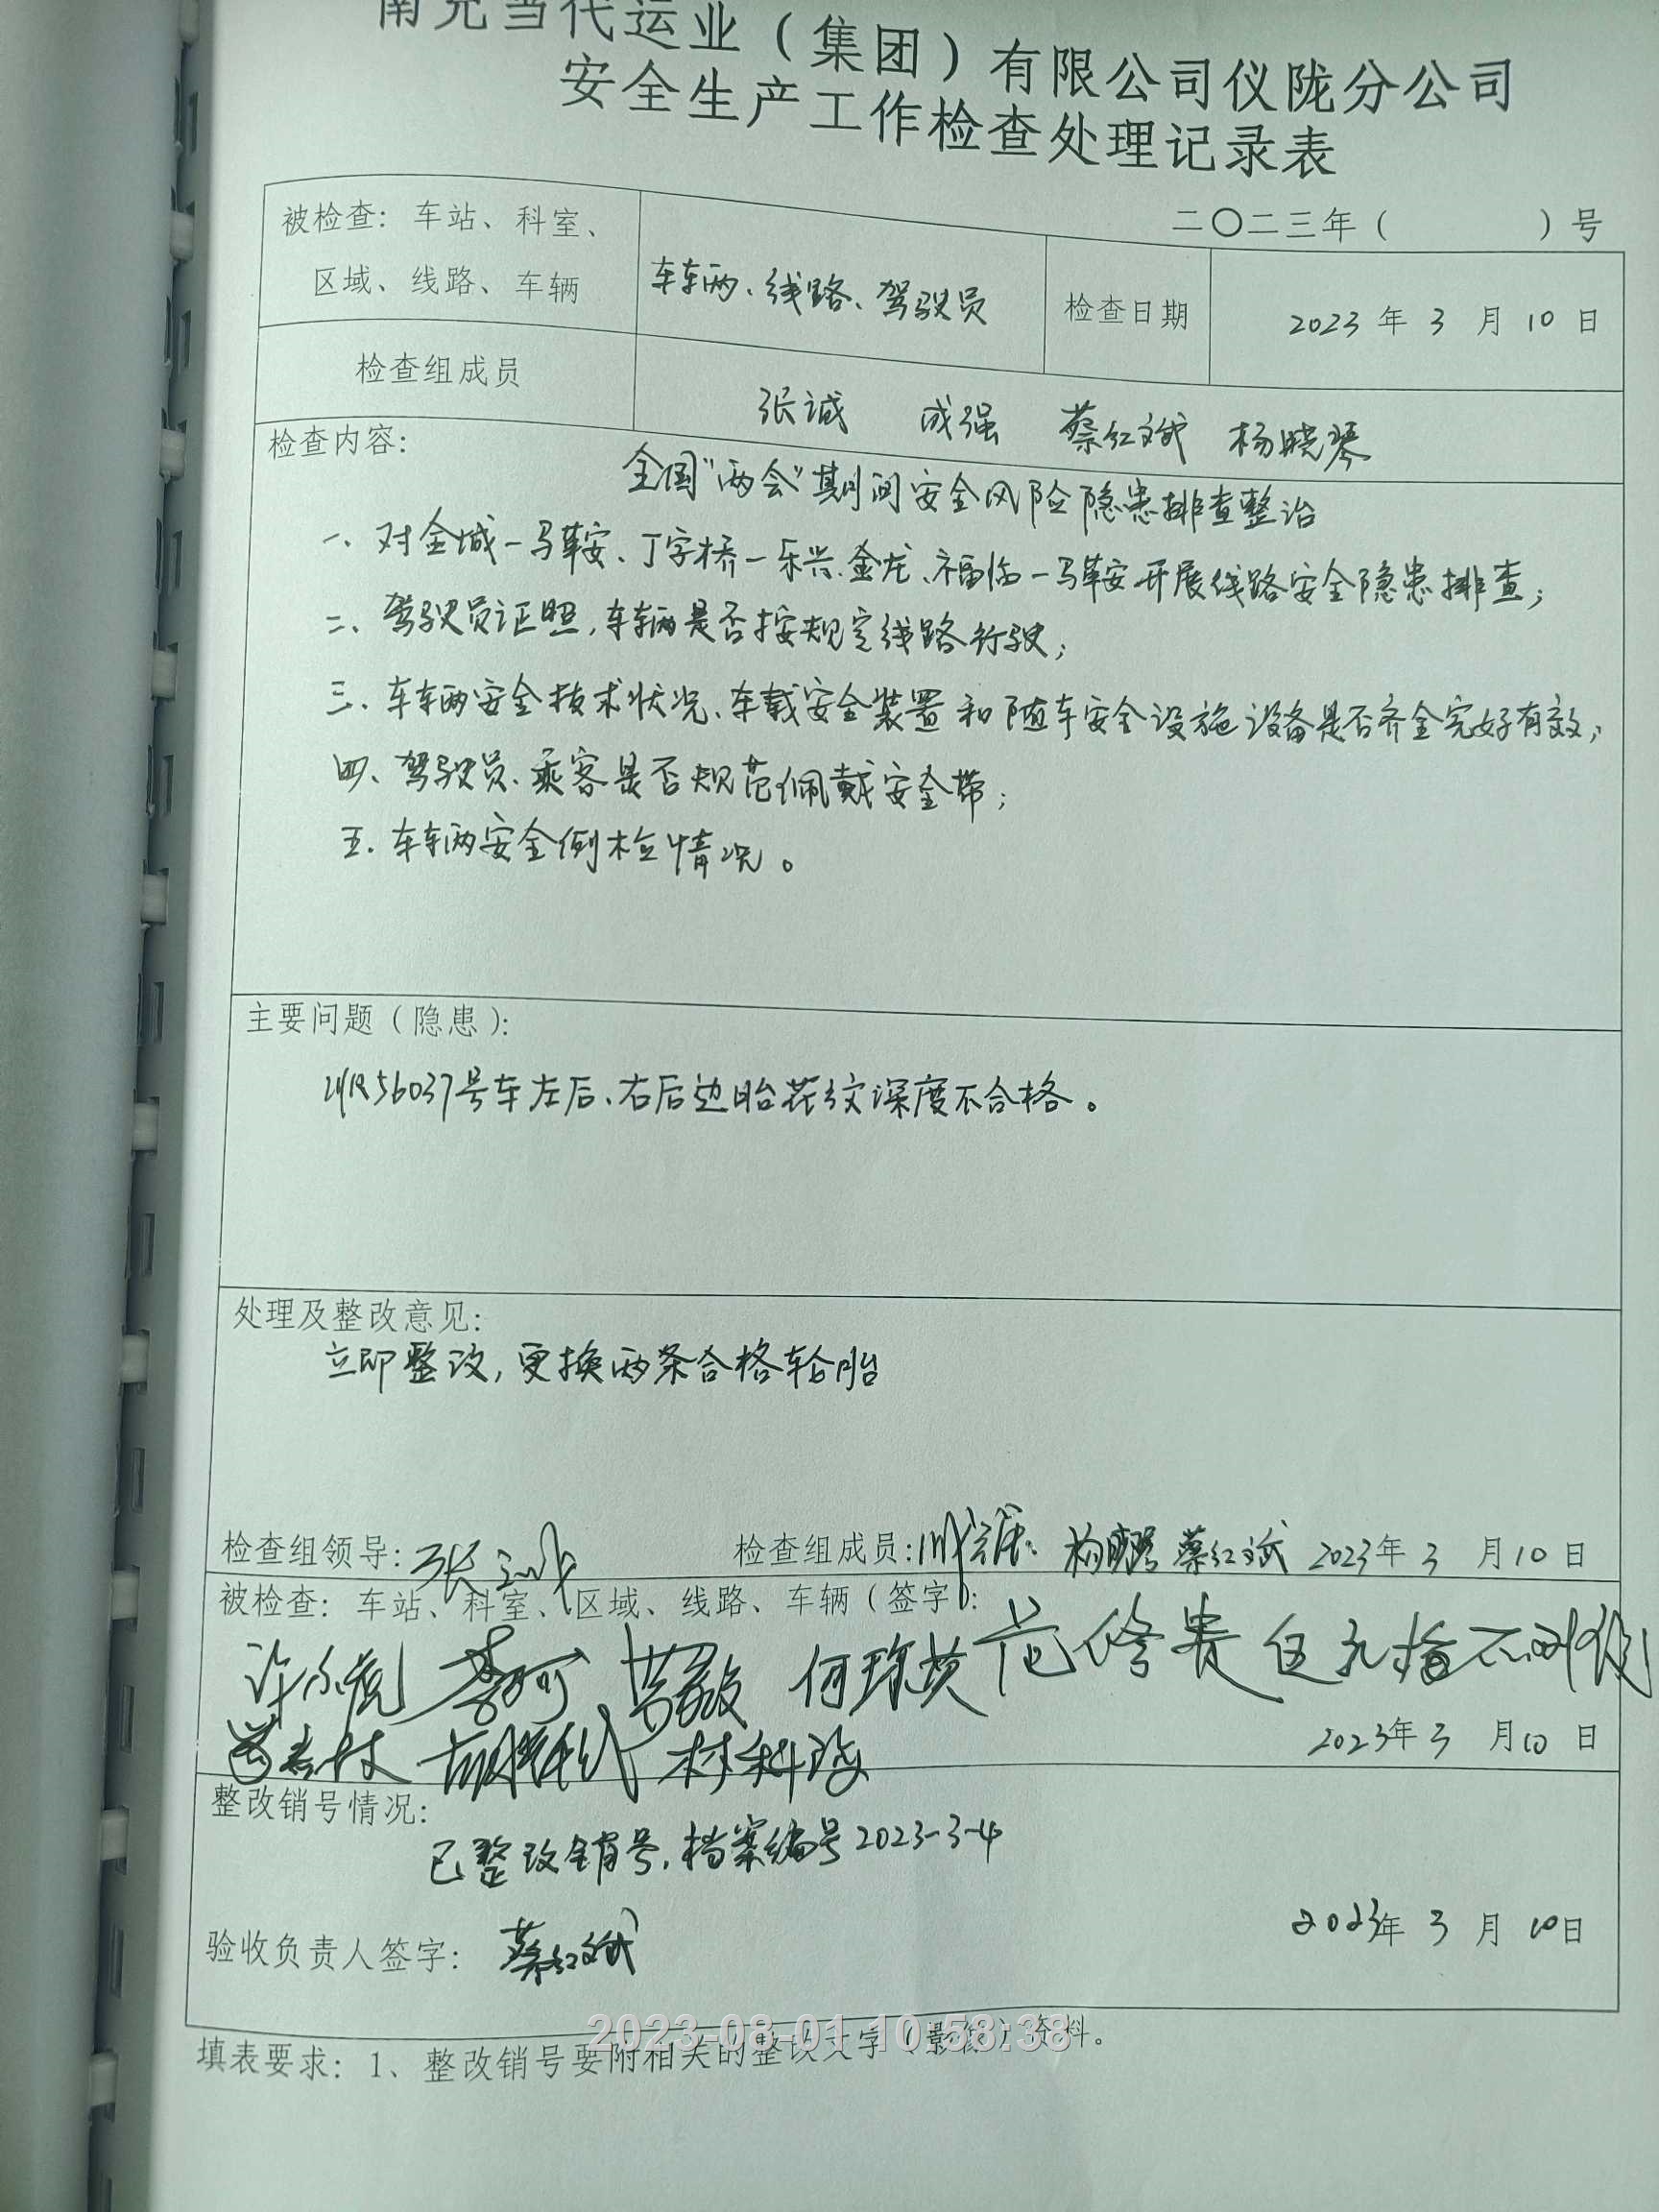 南充当代运业（集团）有限公司仪陇分公司
安全生产工作检查处理记录表
二〇二三年（　　　）号
被检查：车站、科室、
区域、线路、车辆
车辆、线路、驾驶员
检查日期
2023 年 3 月 10 日
检查组成员
张诚 成强 蔡红斌 杨晓琴
检查内容：
全国"两会"期间安全风险隐患排查整治
一、对金城—马鞍、丁字桥—乐兴、金龙、福临—马鞍开展线路安全隐患排查；
二、驾驶员证照，车辆是否按规定线路行驶；
三、车辆安全技术状况、车载安全装置和随车安全设施设备是否齐全完好有效；
四、驾驶员、乘客是否规范佩戴安全带；
五、车辆安全例检情况。
主要问题（隐患）：
川R56037号车左后、右后边胎花纹深度不合格。
处理及整改意见：
立即整改，更换两条合格轮胎
检查组领导：张诚 检查组成员：成强 杨晓琴 蔡红斌 2023年 3 月 10 日
被检查：车站、科室、区域、线路、车辆（签字）：
何琼英 范修贵
2023年 3 月 10 日
整改销号情况：
已整改销号，档案编号2023-3-4
验收负责人签字：蔡红斌
2023年 3 月 10日
填表要求：1、整改销号要附相关的整改文字（影像）资料。
2023-08-01 10:58:38